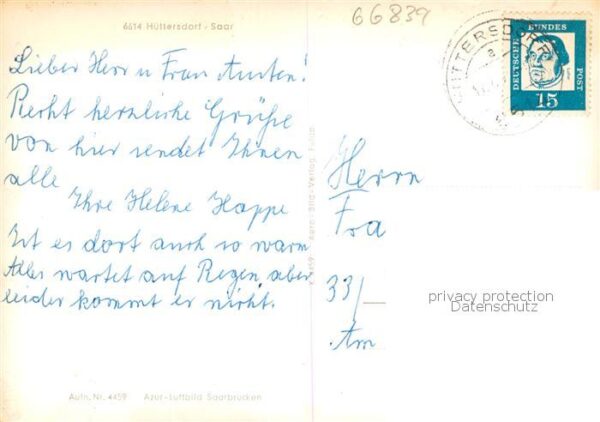 66839
6614 Hüttersdorf - Saar
HÜTTERSDORF
a
DEUTSCHE BUNDES POST
15
Lieber Herr u Frau
Recht herzliche Grüße
von hier sendet Ihnen
alle
Ihre Helene Happe
Ist es dort auch so warm
Alles wartet auf Regen, aber
leider kommt er nicht.
Herrn
Fra
33/
Am
privacy protection
Datenschutz
Aufn. Nr. 4459 Azur-Luftbild Saarbrücken